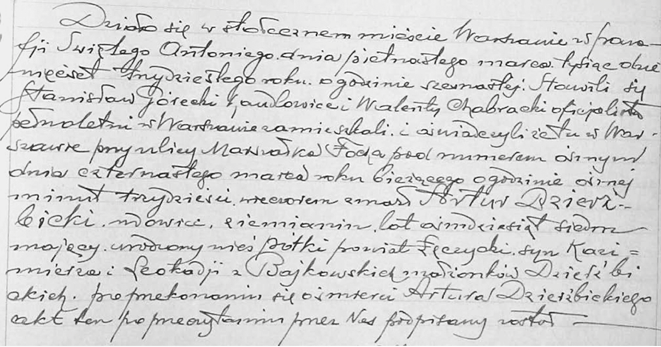 Działo się w stołecznem mieście Warszawie w para=
fji Świętego Antoniego. dnia piętnastego marca tysiąc dzie
więćset trzydziestego roku. o godzinie szesnastej. Stawili się
Stanisław Górecki i Walenty Chabracki oficjaliści
pełnoletni w Warszawie zamieszkali. i oświadczyli że tu w War=
szawie przy ulicy Marszałka Focha pod numerem ósmym
dnia czternastego marca roku bieżącego o godzinie ósmej
minut trzydzieści. wieczorem zmarł Artur Dzierz=
bicki. wdowiec, ziemianin, lat ośmdziesiąt siedm
mający. urodzony wieś powiat Łęczycki. syn Kazi=
mierza i Leokadji z Bajkowskich małżonków Dzierzbi
ckich. po przekonaniu się o śmierci Artura Dzierzbickiego
akt ten po przeczytaniu przez Nas podpisany został